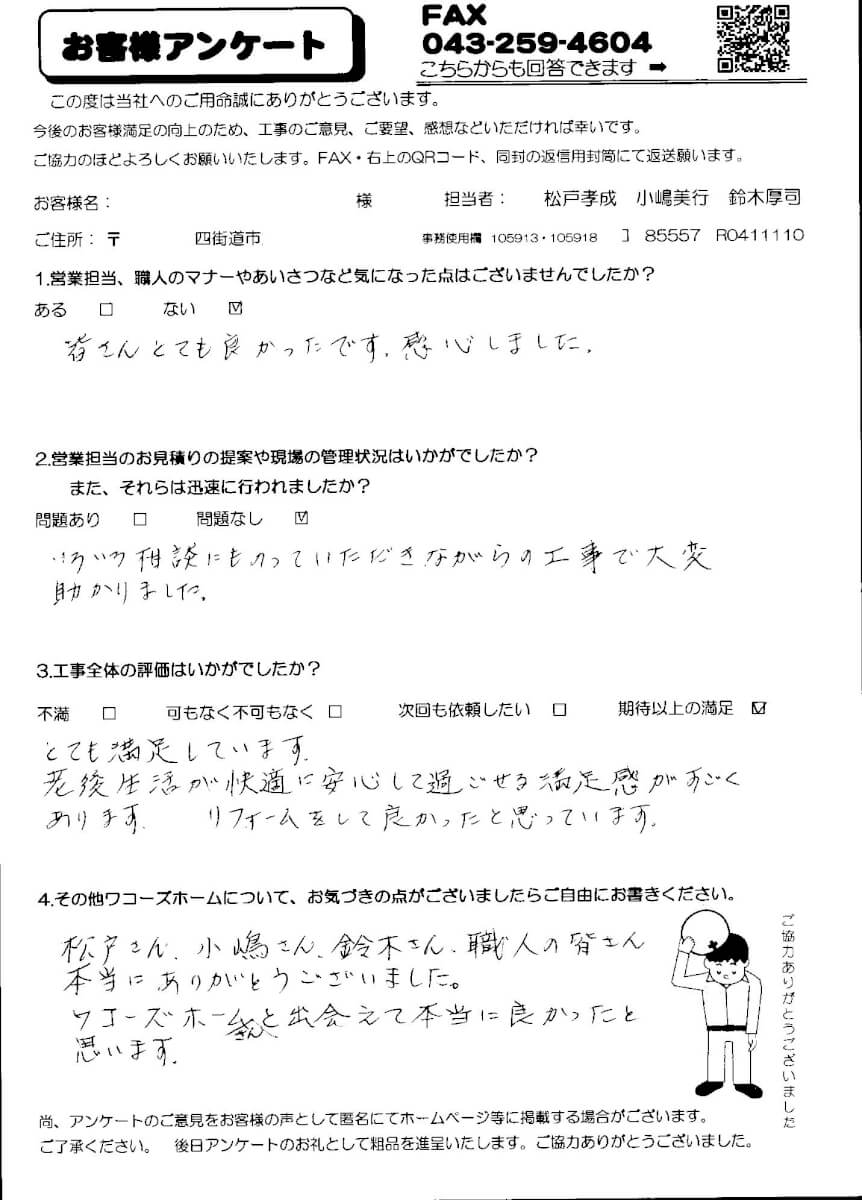 お客様アンケート
FAX
043-259-4604
こちらからも回答できます ➡
この度は当社へのご用命誠にありがとうございます。
今後のお客様満足の向上のため、工事のご意見、ご要望、感想などいただければ幸いです。
ご協力のほどよろしくお願いいたします。FAX・右上のQRコード、同封の返信用封筒にて返送願います。
お客様名： 様 担当者： 松戸孝成 小嶋美行 鈴木厚司
ご住所：〒 四街道市 事務使用欄 105913・105918 】 85557 R0411110
1.営業担当、職人のマナーやあいさつなど気になった点はございませんでしたか？
ある □ ない ☑
皆さんとても良かったです。感心しました。
2.営業担当のお見積りの提案や現場の管理状況はいかがでしたか？
また、それらは迅速に行われましたか？
問題あり □ 問題なし ☑
いろいろ相談にものっていただきながらの工事で大変
助かりました。
3.工事全体の評価はいかがでしたか？
不満 □ 可もなく不可もなく □ 次回も依頼したい □ 期待以上の満足 ☑
とても満足しています。
老後生活が快適に安心して過ごせる満足感がすごく
あります。 リフォームをして良かったと思っています。
4.その他ワコーズホームについて、お気づきの点がございましたらご自由にお書きください。
松戸さん、小嶋さん、鈴木さん、職人の皆さん
本当にありがとうございました。
ワコーズホームさんと出会えて本当に良かったと
思います。
ご協力ありがとうございました
尚、アンケートのご意見をお客様の声として匿名にてホームページ等に掲載する場合がございます。
ご了承ください。 後日アンケートのお礼として粗品を進呈いたします。ご協力ありがとうございました。